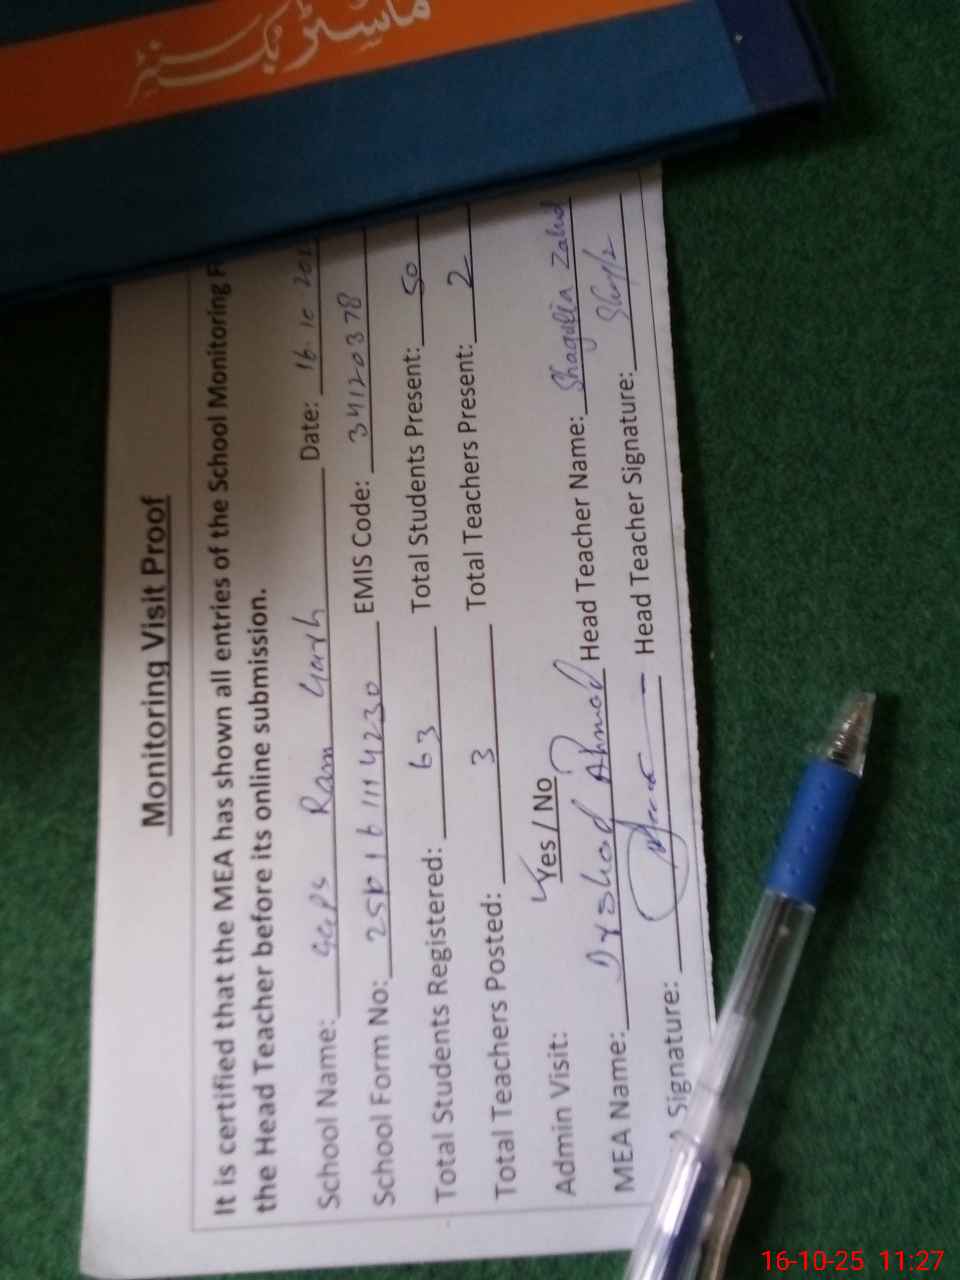 ماسٹر بکسنٹر
Monitoring Visit Proof
It is certified that the MEA has shown all entries of the School Monitoring F
the Head Teacher before its online submission.
School Name: GGPS Ram Garh Date: 16.10 202
School Form No: EMIS Code: 34120378
Total Students Registered: 63 Total Students Present: 50
Total Teachers Posted: 3 Total Teachers Present: 2
Admin Visit: Yes / No
MEA Name: Irshad Ahmad Head Teacher Name: Shagufta Zahid
Signature: Head Teacher Signature:
16-10-25 11:27